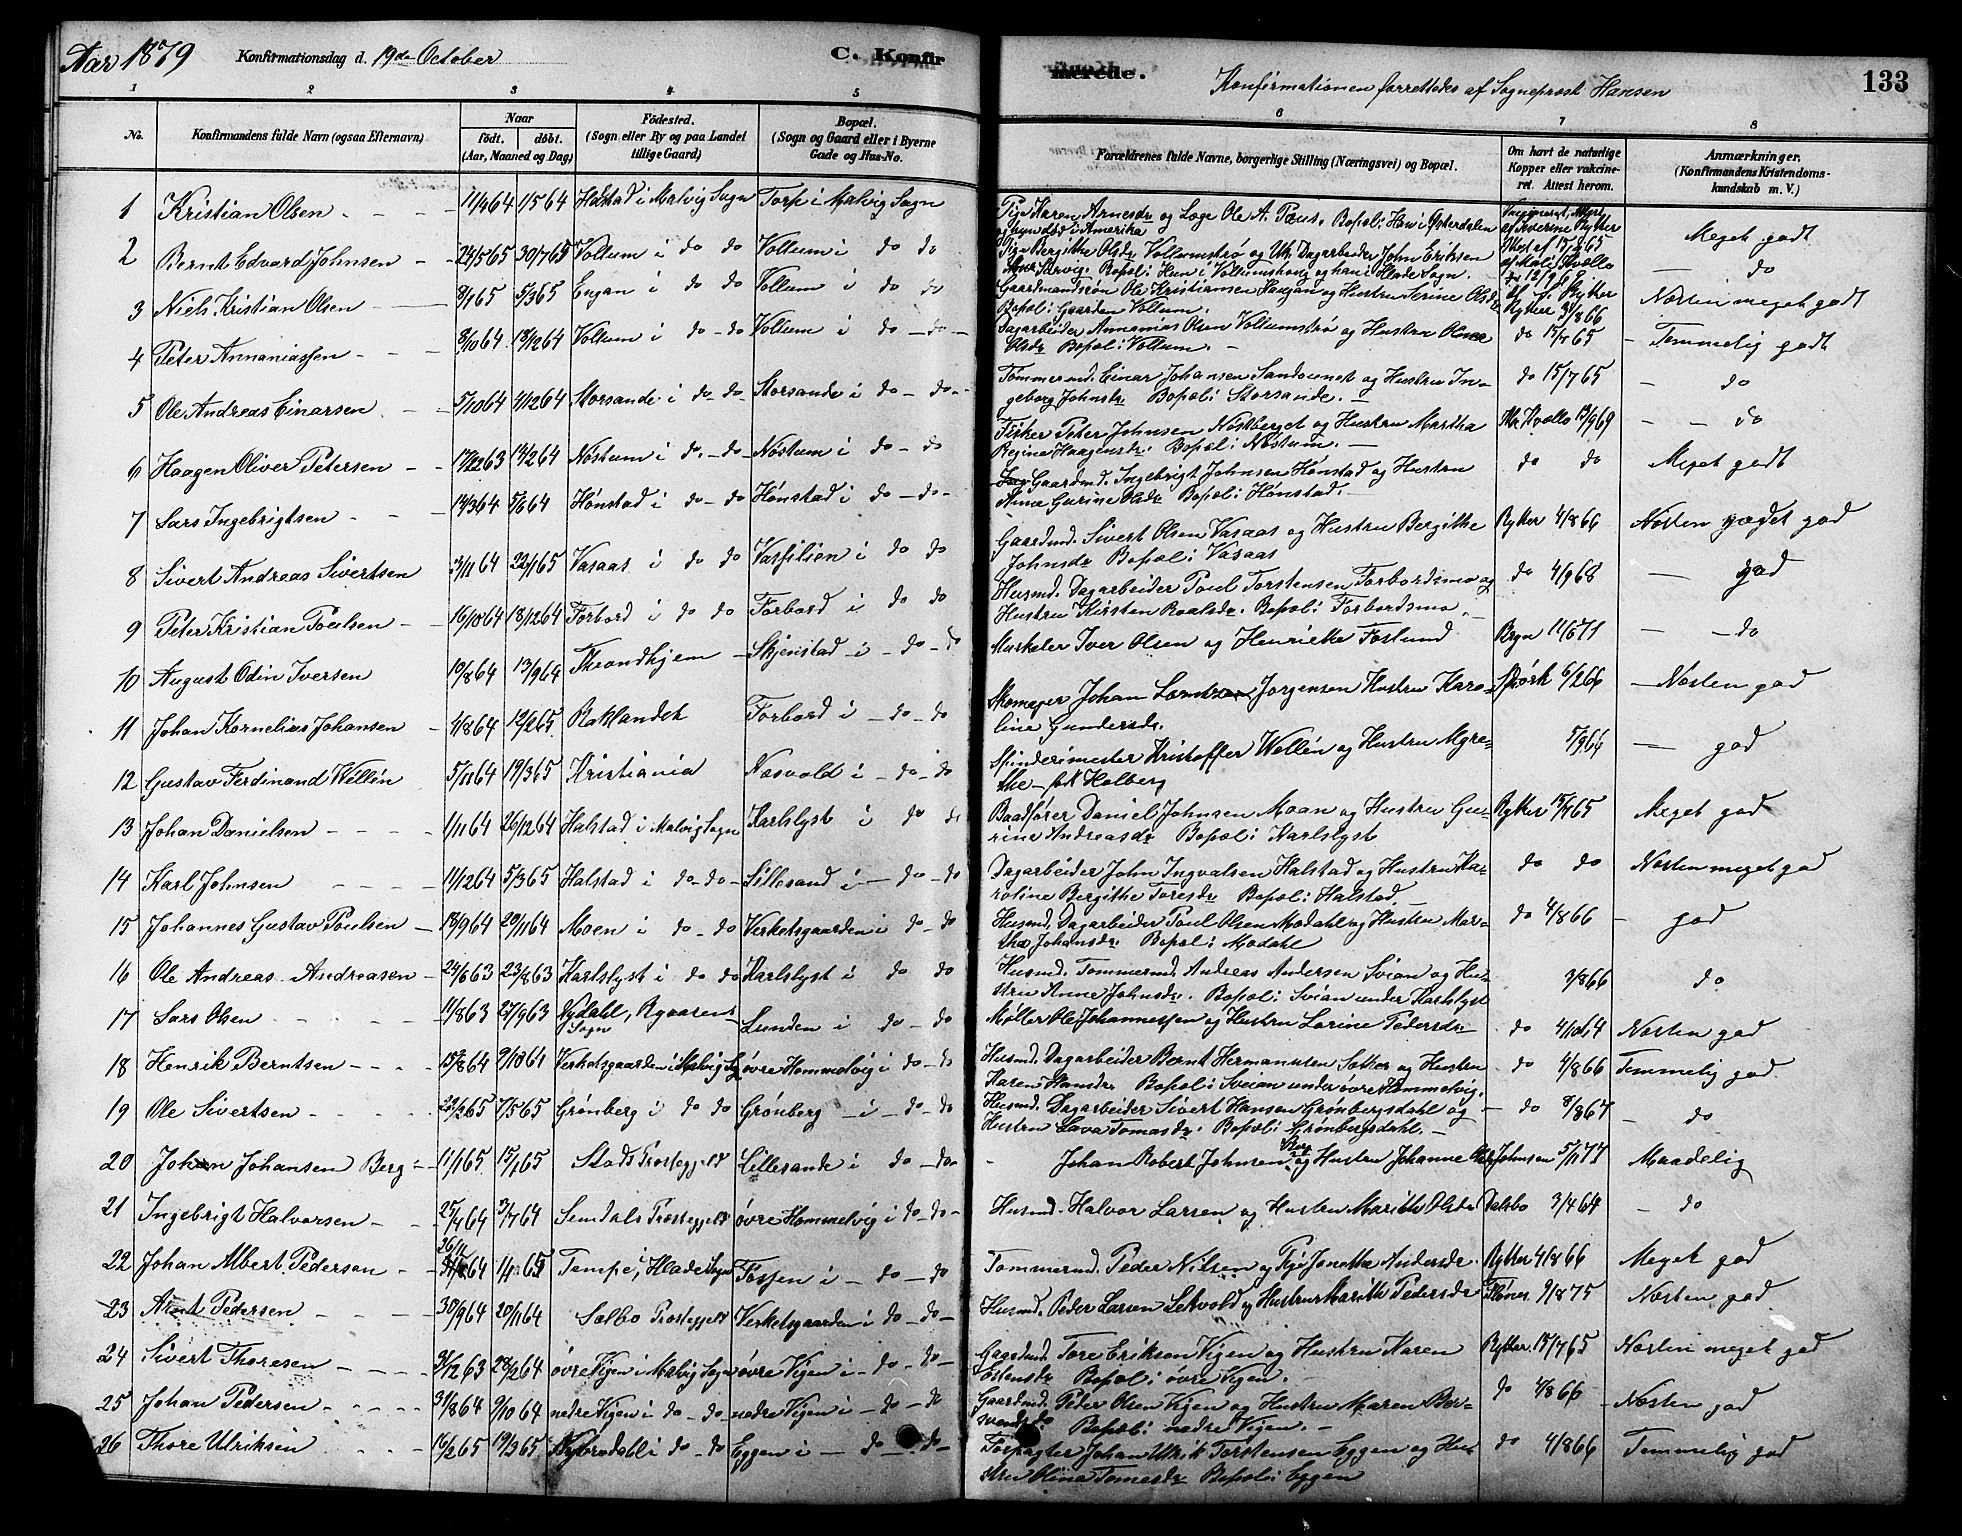 Aar 1879 Konfirmationsdag d. 19de October C. Konfirmerede. Konfirmationen forrettedes af Sogneprost Hansen 133
1 2 3 4 5 6 7 8
No. Konfirmandens fulde Navn (ogsaa Efternavn) Naar født. døbt. (Aar, Maaned og Dag) Fødested. (Sogn eller By og paa Landet tillige Gaard) Bopæl. (Sogn og Gaard eller i Byerne Gade og Hus-No. Forældrenes fulde Navne, borgerlige Stilling (Næringsvei) og Bopæl. Om havt de naturlige Kopper eller vakcineret. Attest herom. Anmærkninger. (Konfirmandens Kristendomskundskab m. V.)
1 Kristian Olsen 11/4 64 1/5 64 Halstad i Malvig Sogn Torp i Malvig Sogn Pige Karen Arnesdr og Læge Ole A. Bopæl: Han i Østerdalen og hun død i Amerika Meget godt
2 Bernt Edvard Johnsen 24/5 65 30/7 65 Vollum i do do Vollum i do do Pige Bergithe Olsdr Vollumstrø og Uk Dagarbeider John Eriksen Bopæl: Hun i Vollumshaug og han i Hlade Sogn. do
3 Niels Kristian Olsen 8/1 65 5/3 65 Engan i do do Vollum i do do Gaardmandssøn Ole Kristiansen Haugan og Hustru Serine Olsdr Bopæl: Gaarden Vollum. Rykker 3/8 66 Næsten meget godt
4 Peter Annaniassen 8/10 64 18/12 64 Vollum i do do Vollum i do do Dagarbeider Annanias Olsen Vollumstrø og Hustru Olsdr Bopæl: Vollum. do 15/7 65 Temmelig godt
5 Ole Andreas Einarsen 5/10 64 4/12 64 Storsande i do do Storsande i do do Tømmermd. Einar Johansen Sandvenet og Hustru Ingeborg Johnsdr Bopæl: Storsande. do 15/7 65 do
6 Haagen Oliver Petersen 17/12 63 14/2 64 Nøstum i do do Nøstum i do do Fisker Peter Johnsen Nøstberget og Hustru Martha Regine Haagensdr. Bopæl: Nøstum. Kvello 13/9 69 do
7 Lars Ingebrigtsen 14/3 64 5/6 64 Hønstad i do do Hønstad i do do Gaardmd. Ingebrigt Johnsen Hønstad og Hustru Anne Gurine Olsdr Bopæl: Hønstad. do do Meget godt
8 Sivert Andreas Sivertsen 23/11 64 22/1 65 Vasaas i do do Varfilien i do do Gaardmd. Sivert Olsen Vasaas og Hustru Bergithe Johnsdr Bopæl: Vasaas Rykker 4/8 66 Næsten meget god
9 Peter Kristian Poulsen 16/10 64 18/12 64 Forbord i do do Forbord i do do Husmd. Dagarbeider Poul Torstensen Forbordsmo og Hustru Kirsten Roalsdr. Bopæl: Forbordsmo. do 4/9 68 god
10 August Odin Iversen 10/8 64 13/9 64 Throndhjem Skjenstad i do do Muskeler Iver Olsen og Henriette Foslund Bryn 11/5 71 do
11 Johan Kornelius Johansen 1/8 64 12/2 65 Baklandet Forbord i do do Skomager Johan Jørgensen Hustru Karoline Gundersdr. Spørk 6/2 66 Næsten god
12 Gustav Ferdinand Wellén 5/11 64 19/3 65 Kristiania Næsvold i do do Spinderimester Kristoffer Wellén og Hustru Agrethe født Holberg 5/9 66 god
13 Johan Danielsen 1/11 64 26/12 64 Halstad i Malvig Sogn Karlslyst i do do Baadfører Daniel Johnsen Moan og Hustru Gurine Andreasdr Bopæl: Karlslyst Rykker 15/7 65 Meget god
14 Karl Johnsen 11/12 64 5/3 65 Halstad i do do Lillesand i do do Dagarbeider John Ingvalsen Halstad og Hustru Karoline Bergithe Toresdr Bopæl: Halstad. do do Næsten meget god
15 Johannes Gustav Poulsen 18/9 64 20/11 64 Moen i do do Verketsgaarden i do do Husmd. Dagarbeider Poul Olsen Modahl og Hustru Martha Johansdr. Bopæl: Modahl do 4/8 66 god
16 Ole Andreas Andreasen 24/6 63 23/8 63 Karlslyst i do do Karlslyst i do do Husmd. Tømmermd. Andreas Andersen Svian og Hustru Anne Johnsdr. Bopæl: Svian under Karlslyst 3/8 66 do
17 Lars Olsen 11/8 63 27/9 63 Nydahl, Sogn Lunden i do do Møller Ole Johannessen og Hustru Lorine Pedersdr do 4/10 64 Næsten god
18 Henrik Berntsen 15/8 64 9/10 64 Verketsgaarden i Malvig Sg øvre Hommelvig i do do Husmd. Dagarbeider Bernt Hermansen og Hustru Karen Hansdr Bopæl: Sveian under øvre Hommelvig. do 4/8 66 Temmelig god
19 Ole Sivertsen 22/2 65 7/5 65 Grønberg i do do Grønberg i do do Husmd. Dagarbeider Sivert Hansen Grønbergsdahl og Hustru Lava Tomasdr. Bopæl: Grønbergsdahl. do 8/8 67 do
20 Johan Johansen Berg 11/1 65 15/1 65 Stods Præstegjeld Lillesande i do do Johan Robert Johnsen Berg og Hustru Johanne Johnsen 5/11 77 Maadelig
21 Ingebrigt Halvorsen 25/4 64 3/7 64 Præstegjeld øvre Hommelvig i do do Husmd. Halvor Larsen og Hustru Marith Olsdr Dalsbo 3/4 64 do
22 Johan Albert Pedersen 26/11 64 1/1 65 Tempe i Hlade Sogn Fossen i do do Tømmermd. Peder Nilsen og Pige Jonetta Andersdr. Rykker 4/8 66 Meget god
23 Arnt Pedersen 30/9 64 20/11 64 Sælbo Præstegjeld Verketsgaarden i do do Husmd. Peder Larsen og Hustru Marith Pedersdr 9/8 75 Næsten god
24 Sivert Thoresen 31/12 63 28/2 64 øvre Vigen i Malvig Sogn øvre Vigen i do do Gaardmd. Tore Eriksen Vigen og Hustru Karen Estensdr Bopæl: øvre Vigen. Rykker 15/7 65 Næsten meget god
25 Johan Pedersen 31/8 64 9/10 64 nedre Vigen i do do nedre Vigen i do do Gaardmd. Peder Olsen Vigen og Hustru Maren Bopæl: nedre Vigen. do 4/8 66 Næsten god
26 Thore Ulriksen 16/2 65 19/3 65 i do do Eggen i do do Forpagter Johan Ulrik Torstensen Eggen og Hustru Olina Tomasdr Bopæl: Eggen do 4/8 66 Temmelig god